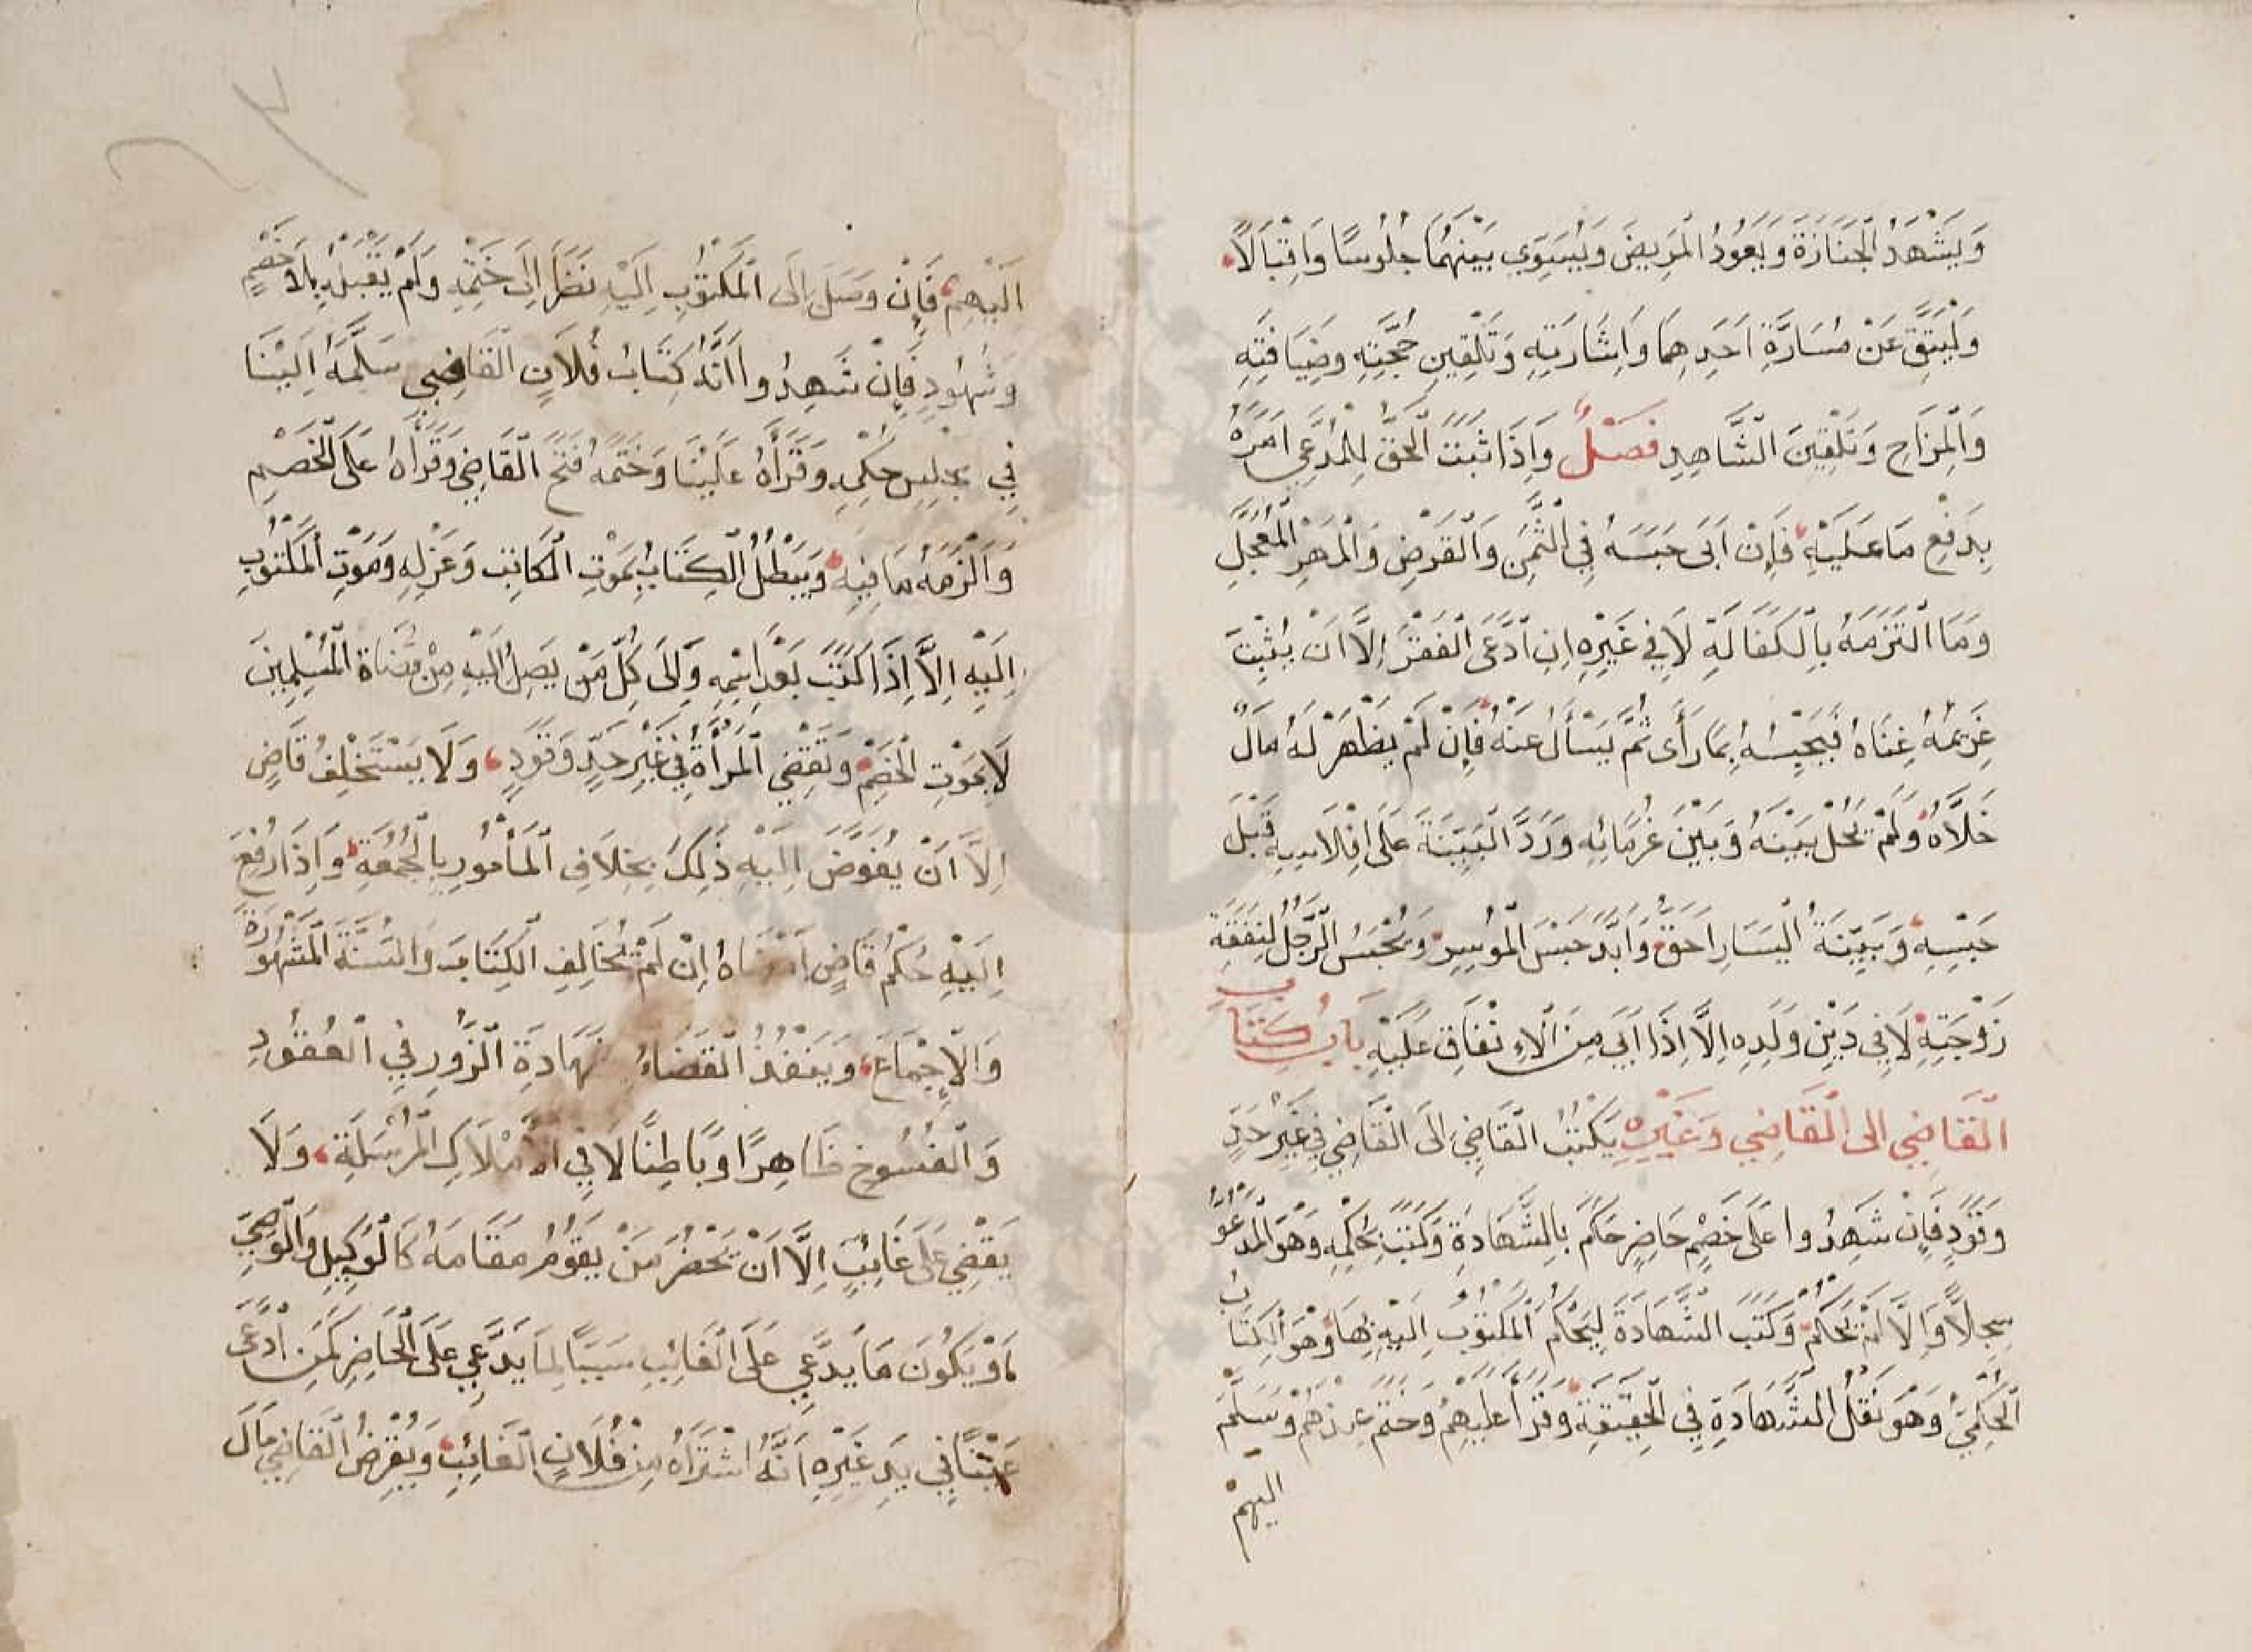 وَيَشْهَدُ الْجَنَازَةَ وَيَعُودُ الْمَرِيضَ وَيُسَوِّي بَيْنَهُمَا جُلُوسًا وَإِقْبَالًا
وَلْيَتَّقِ عَنْ مُسَارَّةِ أَحَدِهِمَا وَإِشَارَتِهِ وَتَلْقِينِ حُجَّتِهِ وَضِيَافَتِهِ
وَالْمِزَاحِ وَتَلْقِينَ الشَّاهِدِ فَصْلٌ وَإِذَا ثَبَتَ الْحَقُّ لِلْمُدَّعِي أَمَرَهُ
بِدَفْعِ مَا عَلَيْهِ فَإِنْ أَبَى حَبَسَهُ فِي الثَّمَنِ وَالْقَرْضِ وَالْمَهْرِ الْمُعَجَّلِ
وَمَا الْتَزَمَهُ بِالْكَفَالَةِ لَا فِي غَيْرِهِ إِنِ ادَّعَى الْفَقْرَ إِلَّا أَنْ يُثْبِتَ
غَرِيمُهُ غِنَاهُ فَيَحْبِسُهُ بِمَا رَأَى ثُمَّ يَسْأَلُ عَنْهُ فَإِنْ لَمْ يَظْهَرْ لَهُ مَالٌ
خَلَّاهُ وَلَمْ يَحُلْ بَيْنَهُ وَبَيْنَ غُرَمَائِهِ وَرَدَّ الْبَيِّنَةَ عَلَى إِفْلَاسِهِ قَبْلَ
حَبْسِهِ وَبَيِّنَةُ الْيَسَارِ أَحَقُّ وَأَبَّدَ حَبْسَ الْمُوسِرِ وَيُحْبَسُ الرَّجُلُ لِنَفَقَةِ
زَوْجَتِهِ لَا فِي دَيْنِ وَلَدِهِ إِلَّا إِذَا أَبَى مِنَ الْإِنْفَاقِ عَلَيْهِ بَابُ كِتَابِ
الْقَاضِي إِلَى الْقَاضِي وَغَيْرِهِ يَكْتُبُ الْقَاضِي إِلَى الْقَاضِي فِي غَيْرِ حَدٍّ
وَقَوَدٍ فَإِنْ شَهِدُوا عَلَى خَصْمٍ حَاضِرٍ حَكَمَ بِالشَّهَادَةِ وَكَتَبَ بِحُكْمِهِ وَهُوَ الْمَدْعُوُّ
سِجِلًّا وَإِلَّا لَمْ يَحْكُمْ وَكَتَبَ الشَّهَادَةَ لِيَحْكُمَ الْمَكْتُوبُ إِلَيْهِ بِهَا وَهُوَ الْكِتَابُ
الْحُكْمِيُّ وَهُوَ نَقْلُ الشَّهَادَةِ فِي الْحَقِيقَةِ وَقَرَأَ عَلَيْهِمْ وَخَتَمَ عِنْدَهُمْ وَسَلَّمَ
اليهم
إِلَيْهِمْ فَإِنْ وَصَلَ إِلَى الْمَكْتُوبِ إِلَيْهِ نَظَرَ إِلَى خَتْمِهِ وَلَمْ يَقْبَلْهُ بِلَا خَصْمٍ
وَشُهُودٍ فَإِنْ شَهِدُوا أَنَّهُ كِتَابُ فُلَانٍ الْقَاضِي سَلَّمَهُ إِلَيْنَا
فِي مَجْلِسِ حُكْمِهِ وَقَرَأَهُ عَلَيْنَا وَخَتَمَهُ فَتَحَ الْقَاضِي وَقَرَأَهُ عَلَى الْخَصْمِ
وَأَلْزَمَهُ مَا فِيهِ وَيَبْطُلُ الْكِتَابُ بِمَوْتِ الْكَاتِبِ وَعَزْلِهِ وَمَوْتِ الْمَكْتُوبِ
إِلَيْهِ إِلَّا إِذَا كَتَبَ بَعْدَ اسْمِهِ وَإِلَى كُلِّ مَنْ يَصِلُ إِلَيْهِ مِنْ قُضَاةِ الْمُسْلِمِينَ
لَا بِمَوْتِ الْخَصْمِ وَتَقْضِي الْمَرْأَةُ فِي غَيْرِ حَدٍّ وَقَوَدٍ وَلَا يَسْتَخْلِفُ قَاضٍ
إِلَّا أَنْ يُفَوَّضَ إِلَيْهِ ذَلِكَ بِخِلَافِ الْمَأْمُورِ بِالْجُمُعَةِ وَإِذَا رُفِعَ
إِلَيْهِ حُكْمُ قَاضٍ أَمْضَاهُ إِنْ لَمْ يُخَالِفِ الْكِتَابَ وَالسُّنَّةَ الْمَشْهُورَةَ
وَالْإِجْمَاعَ وَيَنْفُذُ الْقَضَاءُ بِشَهَادَةِ الزُّورِ فِي الْعُقُودِ
وَالْفُسُوخِ ظَاهِرًا وَبَاطِنًا لَا فِي الْأَمْلَاكِ الْمُرْسَلَةِ وَلَا
يَقْضِي عَلَى غَائِبٍ إِلَّا أَنْ يَحْضُرَ مَنْ يَقُومُ مَقَامَهُ كَالْوَكِيلِ وَالْوَصِيِّ
أَوْ يَكُونَ مَا يَدَّعِي عَلَى الْغَائِبِ سَبَبًا لِمَا يَدَّعِي عَلَى الْحَاضِرِ كَمَنِ ادَّعَى
عَيْنًا فِي يَدِ غَيْرِهِ أَنَّهُ اشْتَرَاهُ مِنْ فُلَانٍ الْغَائِبِ وَيُقْرِضُ الْقَاضِي مَالَ